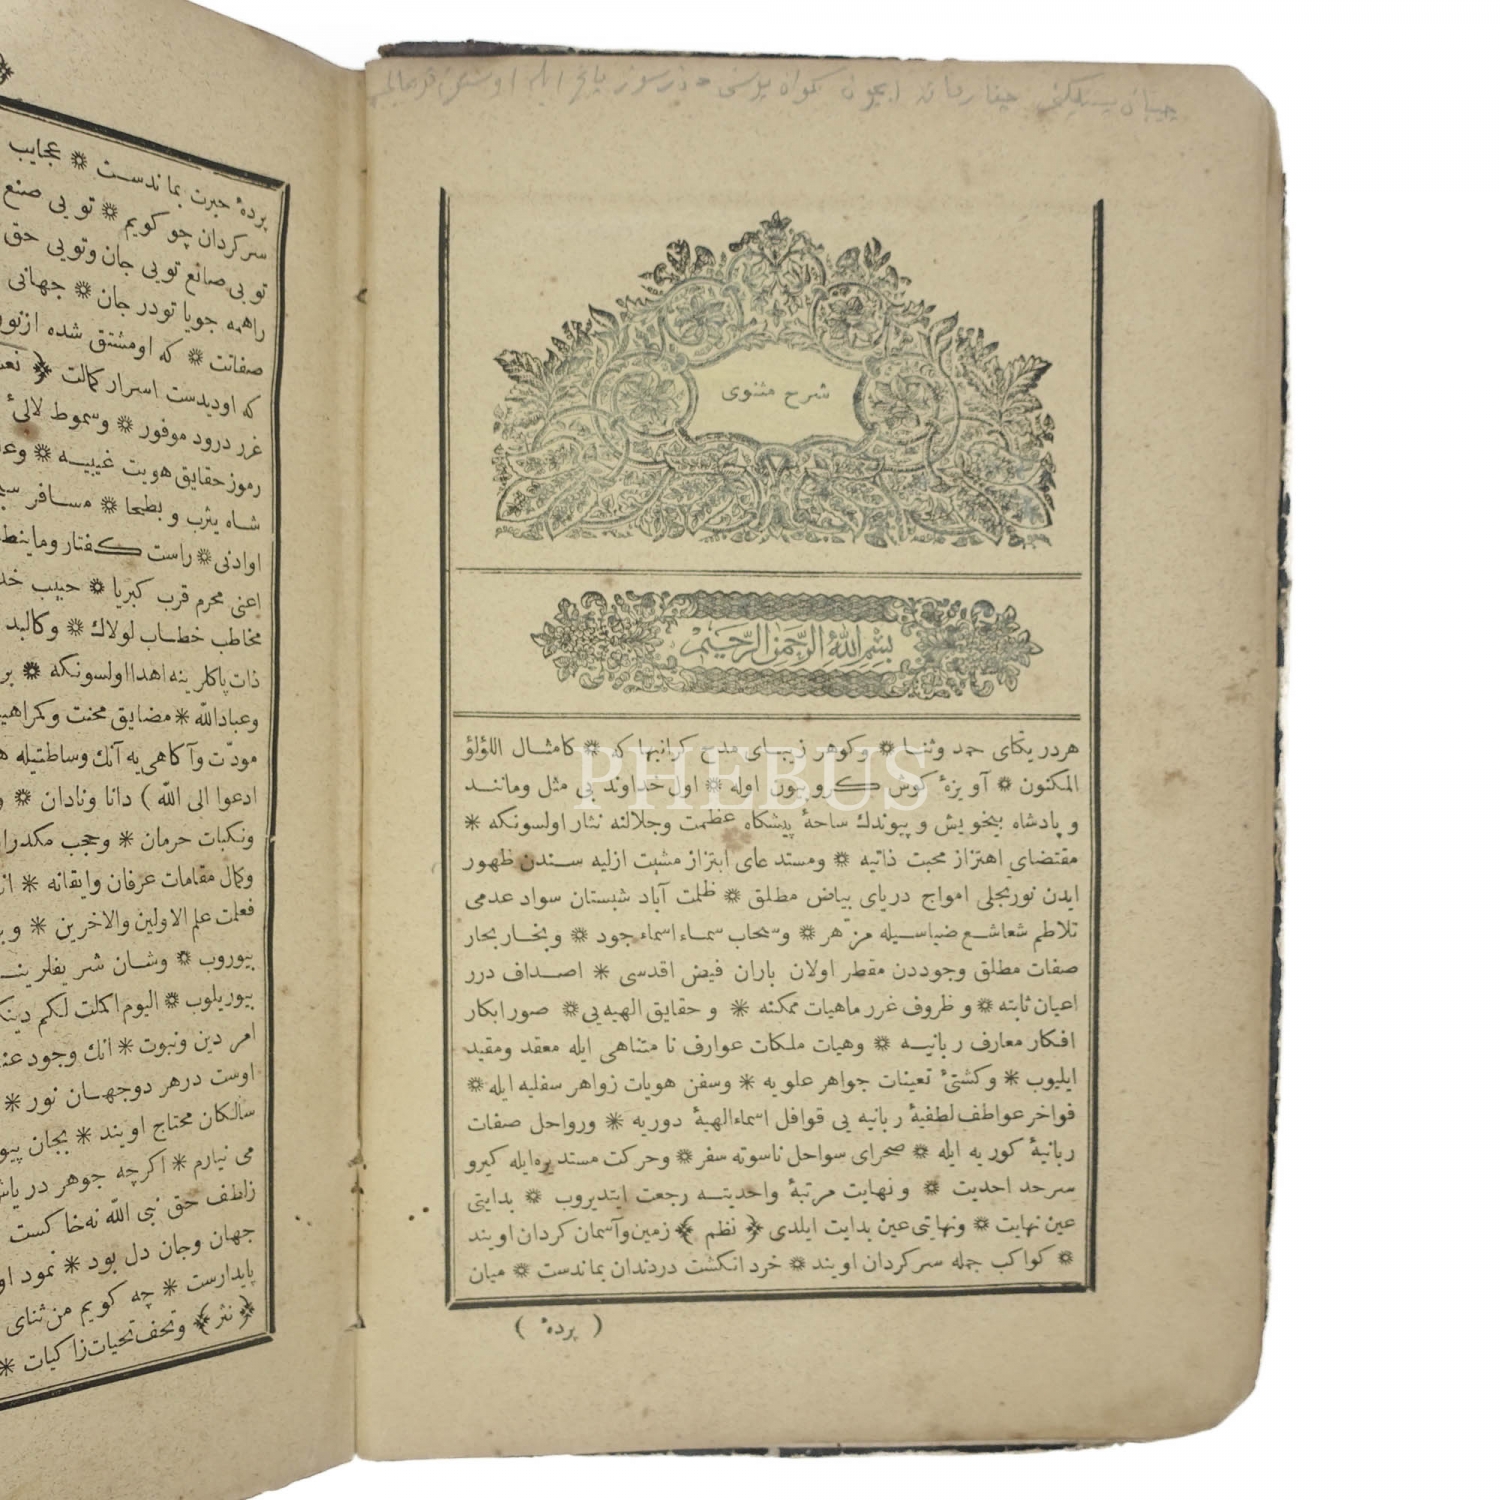 شرح مثنوی
بِسْمِ اللّٰهِ الرَّحْمٰنِ الرَّحِيْمِ
هردر یکتای حمد وثنا * وکوهر زیبای مدح کرانبها که * کامثال اللؤلؤ
المکنون * آویزهٔ کوش کروبیون اوله * اول خداوند بی مثل ومانند
و پادشاه بیخویش و پیوندك ساحهٔ پیشکاه عظمت وجلالنه نثار اولسونکه *
مقتضای اهتزاز محبت ذاتیه * ومستدعای ابتزاز مشیت ازلیه سندن ظهور
ایدن نورتجلی امواج دریای بیاض مطلق * ظلمت آباد شبستان سواد عدمی
تلاطم شعاشع ضیاسیله مزّهر * وسحاب سماء اسماء جود * وبخار بحار
صفات مطلق وجوددن مقطر اولان باران فیض اقدسی * اصداف درر
اعیان ثابته * و ظروف غرر ماهیات ممکنه * و حقایق الهیه یی * صور ابکار
افکار معارف ربانیه * وهیات ملکات عوارف نا متناهی ایله معقد ومقید
ایلیوب * وکشتئ تعینات جواهر علویه * وسفن هویات زواهر سفلیه ایله *
فواخر عواطف لطفیهٔ ربانیه یی قوافل اسماء الهیهٔ دوریه * ورواحل صفات
ربانیهٔ کوریه ایله * صحرای سواحل ناسوته سفر * وحرکت مستدیره ایله کیرو
سرحد احدیت * ونهایت مرتبهٔ واحدیته رجعت ایتدیروب * بدایتی
عین نهایت * ونهایتی عین بدایت ایلدی ﴿ نظم ﴾ زمین وآسمان کردان اویند
* کواکب جمله سرکردان اویند * خرد انکشت دردندان بماندست * میان
( پردهٔ )
پردهٔ حیرت بماندست * عجایب
سرکردان چو کویم * تویی صنع
تویی صانع تویی جان وتویی حق
راهمه جویا تودر جان * جهانی
صفاتت * که اومشتق شده ازنور
که اودیدست اسرار کمالت ﴿
غرر درود موفور * وسموط لالئ
رموز حقایق هویت غیبیه *
شاه یثرب و بطحا * مسافر
اوادنی * راست کفتار وماینطق
اعنی محرم قرب کبریا * حبیب
مخاطب خطاب لولاك * وکالبد
ذات پاکلرینه اهدا اولسونکه *
وعبادالله * مضایق محنت وکمراهی
مودّت وآکاهی یه آنك وساطتیله
ادعوا الی الله ) دانا ونادان *
ونکبات حرمان * وحجب مکدر
وکمال مقامات عرفان وایقانه *
فعلمت علم الاولین والاخرین *
بیوروب * وشان شریفلرینه
بیوریلوب * الیوم اکملت لکم دینکم
امر دین ونبوت * انك وجود
اوست درهر دوجهان نور *
سالکان محتاج اویند * بجان
می نیارم * اکرچه جوهر دریا
زلطف حق نبی الله نه خاکست
جهان وجان دل بود * نمود
پایدارست * چه کویم من ثنای
﴿ نثر ﴾ وتحف تحیات زاکیات *
PHEBUS